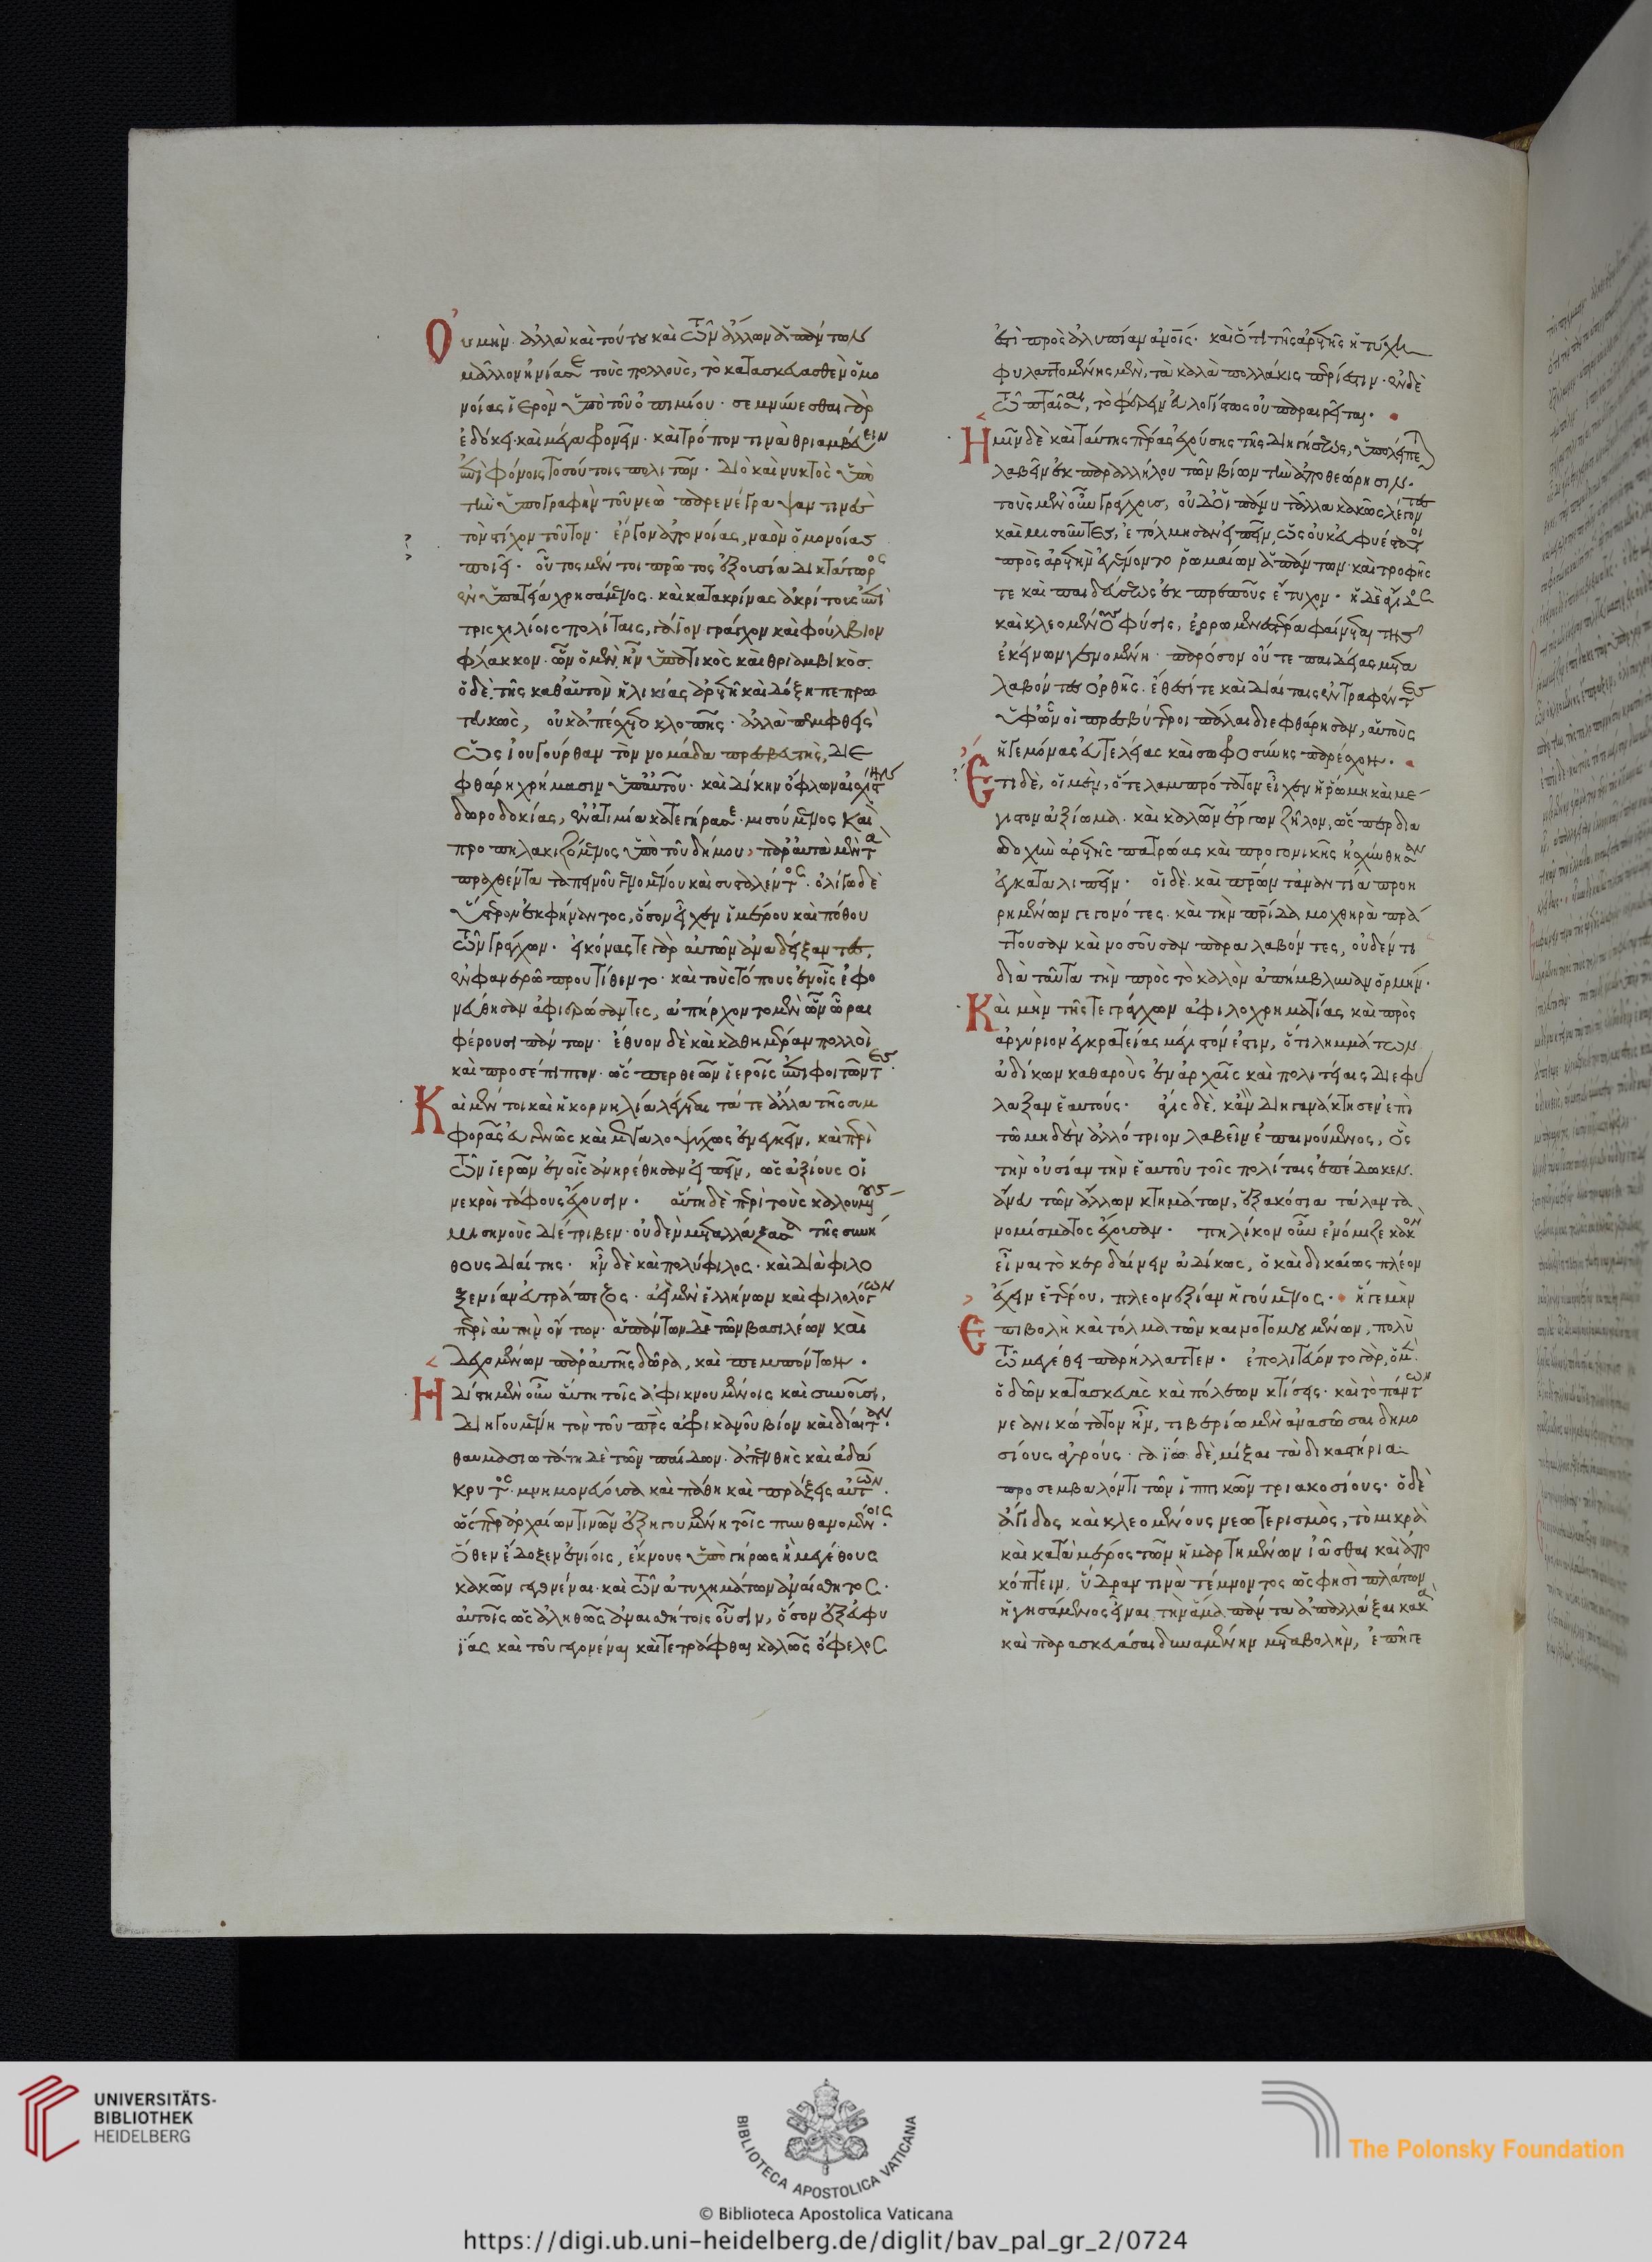 Οὐ μὴν ἀλλὰ καὶ τούτου καὶ τῶν ἄλλων ἁπάντων
μᾶλλον ἠνίασε τοὺς πολλοὺς, τὸ κατασκευασθὲν ὁμο
νοίας ἱερὸν ὑπὸ τοῦ ὀπιμίου· σεμνύνεσθαι γὰρ
ἐδόκει· καὶ μέγα φρονεῖν· καὶ τρόπον τινὰ θριαμβεύειν
ἐπὶ φόνοις τοσούτοις πολιτῶν. διὸ καὶ νυκτὸς ὑπὸ
τὴν ὑπογραφὴν τοῦ νεὼ παρενέγραψαν τινὲς
τὸν στίχον τοῦτον· ἔργον ἀπονοίας, ναὸν ὁμονοίας
ποιεῖ. οὗτος μέν τοι πρῶτος ἐξουσία δικτάτωρος
ἐν ὑπατεία χρησάμενος· καὶ κατακρίνας ἀκρίτους ἐπὶ
τρισχιλίοις πολίταις, γάϊον γράγχον καὶ φούλβιον
φλάκκον· ὧν ὁ μὲν ἦν ὑπατικὸς καὶ θριαμβικὸς·
ὁ δὲ, τῆς καθ' αὑτὸν ἡλικίας ἀρετῆ καὶ δόξη πεπρω
τευκὼς, οὐκ ἀπέσχετο κλοπῆς· ἀλλὰ πεμφθεὶς
ὡς ἰουγούρθαν τὸν νομάδα πρεσβευτὴς, διε
φθάρη χρήμασιν ὑπ' αὐτοῦ· καὶ δίκην ὀφλὼν αἰσχίστην
δωροδοκίας, ἐν ἀτιμία κατεγήρασε· μισούμενος καὶ
προπηλακιζόμενος ὑπὸ τοῦ δήμου, παρ' αὐτὰ μὲν τὰ
πραχθέντα ταπεινοῦ γενομένου καὶ συσταλέντος· ὀλίγω δὲ
ὕστερον ἐκφήναντος, ὅσον εἶχεν ἱμέρου καὶ πόθου
τῶν γράγχων· εἰκόνας τε γὰρ αὐτῶν ἀναδείξαντες,
ἐν φανερῶ προυτίθεντο· καὶ τοὺς τόπους ἐν οἷς ἐφο
νεύθησαν ἀφιερώσαντες, ἀπήρχοντο μὲν ὧν ὧραι
φέρουσι πάντων· ἔθυον δὲ καὶ καθημέραν πολλοὶ
καὶ προσέπιπτον· ὥσπερ θεῶν ἱεροῖς ἐπιφοιτῶντες.
Καὶ μέν τοι καὶ ἡ κορνηλία λέγεται τά τε ἄλλα τῆς συμ
φορᾶς εὐγενῶς καὶ μεγαλοψύχως ἐνεγκεῖν, καὶ περὶ
τῶν ἱερῶν ἐν οἷς ἀνηρέθησαν εἰπεῖν, ὡς ἀξίους οἱ
νεκροὶ τάφους ἔχουσιν. αὕτη δὲ περὶ τοὺς καλουμένους
μισηνοὺς διέτριβεν· οὐδὲν μεταλλάξασα τῆς συνή
θους διαίτης. ἦν δὲ καὶ πολύφιλος· καὶ διὰ φιλο
ξενίαν εὐτράπεζος· ἀεὶ μὲν ἑλλήνων καὶ φιλολόγων
περὶ αὐτὴν ὄντων· ἁπάντων δὲ τῶν βασιλέων καὶ
δεχομένων παρ' αὐτῆς δῶρα, καὶ πεμπόντων.
Ἡδίστη μὲν οὖν αὕτη τοῖς ἀφικνουμένοις καὶ συνοῦσι,
διηγουμένη τὸν τοῦ πατρὸς ἀφρικανοῦ βίον καὶ δίαιταν·
θαυμασιωτάτη δὲ τῶν παίδων· ἀπενθὴς καὶ ἀδά
κρυτος· μνημονεύουσα καὶ πάθη καὶ πράξεις αὐτῶν·
ὥσπερ ἀρχαίων τινῶν ἐξηγουμένη τοῖς πυνθανομένοις.
ὅθεν ἔδοξεν ἐνίοις, ἔκνους ὑπὸ γήρως ἢ μεγέθους
κακῶν γεγονέναι· καὶ τῶν ἀτυχημάτων ἀναίσθητος·
αὐτοῖς ὡς ἀληθῶς ἀναισθήτοις οὖσιν, ὅσον ἐξ εὐφυ
ϊας καὶ τοῦ γεγονέναι καὶ τετράφθαι καλῶς ὄφελος
ἐστὶ πρὸς ἀλυπίαν ἀνοῖς· καὶ ὅτι τῆς ἀρετῆς ἡ τύχη
φυλαττομένης μὲν, τὰ καλὰ πολλάκις περίεστιν· ἐν δὲ
τῶ πταῖσαι, τὸ φέρειν εὐλογίστως οὐ παραιρεῖται.
Ἡμῖν δὲ καὶ ταύτης πέρας ἐχούσης τῆς διηγήσεως, ὑπολείπεται
λαβεῖν ἐκ παραλλήλου τῶν βίων τὴν ἀποθεώρησιν.
τοὺς μὲν οὖν γράγχους, οὐδ' οἱ πάνυ τἄλλα κακῶς λέγοντες
καὶ μισοῦντες, ἐτόλμησαν εἰπεῖν, ὡς οὐκ εὐφυέστατοι
πρὸς ἀρετὴν ἐγένοντο ῥωμαίων ἁπάντων· καὶ τροφῆς
τε καὶ παιδεύσεως ἐκ πρεποῦς ἔτυχον· ἡ δὲ ἄγιδος
καὶ κλεομένους φύσις, ἐρρωμενεστέρα φαίνεται τῆς
ἐκείνων γενομένη· παρόσον οὔτε παιδείας μετα
λαβόντες ὀρθῆς· ἔθεσί τε καὶ διαίταις ἐντραφέντες
ὑφ' ὧν οἱ πρεσβύτεροι πάλαι διεφθάρησαν, αὑτοὺς
ἡγεμόνας εὐτελείας καὶ σωφροσύνης παρέσχον.
Ἔτι δὲ, οἱ μὲν, ὅτε λαμπρότατον εἶχεν ἡ ῥώμη καὶ μέ
γιστον ἀξίωμα· καὶ καλῶν ἔργων ζῆλον, ὥσπερ δια
δοχὴν ἀρετῆς πατρώας καὶ προγονικῆς ἠσχύνθησαν
ἐγκαταλιπεῖν. οἱ δὲ, καὶ πατέρων τἀναντία προη
ρημένων γεγονότες· καὶ τὴν πατρίδα μοχθηρὰ πρά
ττουσαν καὶ νοσοῦσαν παραλαβόντες, οὐδέν τι
διὰ ταῦτα τὴν πρὸς τὸ καλὸν ἀπήμβλυναν ὁρμήν.
Καὶ μὴν τῆς τε γράγχων ἀφιλοχρηματίας καὶ πρὸς
ἀργύριον ἐγκρατείας μέγιστόν ἐστιν, ὅτι λημμάτων
ἀδίκων καθαροὺς ἐν ἀρχαῖς καὶ πολιτείαις διεφύ
λαξαν ἑαυτούς. ἆγις δὲ, κἂν διηγανάκτησεν ἐπὶ
τῶ μηδὲν ἀλλότριον λαβεῖν ἐπαινούμενος, ὃς
τὴν οὐσίαν τὴν ἑαυτοῦ τοῖς πολίταις ἐπέδωκεν.
ἄνευ τῶν ἄλλων κτημάτων, ἑξακόσια τάλαντα
νομίσματος ἔχουσαν. πηλίκον οὖν ἐνόμιζε κακὸν
εἶναι τὸ κερδαίνειν ἀδίκως, ὁ καὶ δικαίως πλέον
ἔχειν ἑτέρου, πλεονεξίαν ἡγούμενος. ἥ γε μὴν
Ἐπιβολὴ καὶ τόλμα τῶν καινοτομουμένων, πολὺ
τῶ μεγέθει παρήλλαττεν. ἐπολιτεύοντο γὰρ, ὁ μὲν
ὁδῶν κατασκευὰς καὶ πόλεων κτίσεις· καὶ τὸ πάντων
νεανικώτατον ἦν, τιβερίω μὲν ἀνασῶσαι δημο
σίους ἀγρούς· γαΐω δὲ, μίξαι τὰ δικαστήρια
προσεμβαλόντι τῶν ἱππικῶν τριακοσίους· ὁ δὲ
ἄγιδος καὶ κλεομένους νεωτερισμὸς, τὸ μικρὰ
καὶ κατὰ μέρος τῶν ἡμαρτημένων ἰᾶσθαι καὶ ἀπο
κόπτειν, ὕδραν τινὰ τέμνοντος ὥς φησι πλάτων
ἡγησάμενος εἶναι, τὴν ἅμα πάντα ἀπαλλάξαι κακὰ
καὶ παρασκευάσαι δυναμένην μεταβολὴν, ἐπῆγε
UNIVERSITÄTS-
BIBLIOTHEK
HEIDELBERG
BIBLIOTECA APOSTOLICA VATICANA
© Biblioteca Apostolica Vaticana
The Polonsky Foundation
https://digi.ub.uni-heidelberg.de/diglit/bav_pal_gr_2/0724